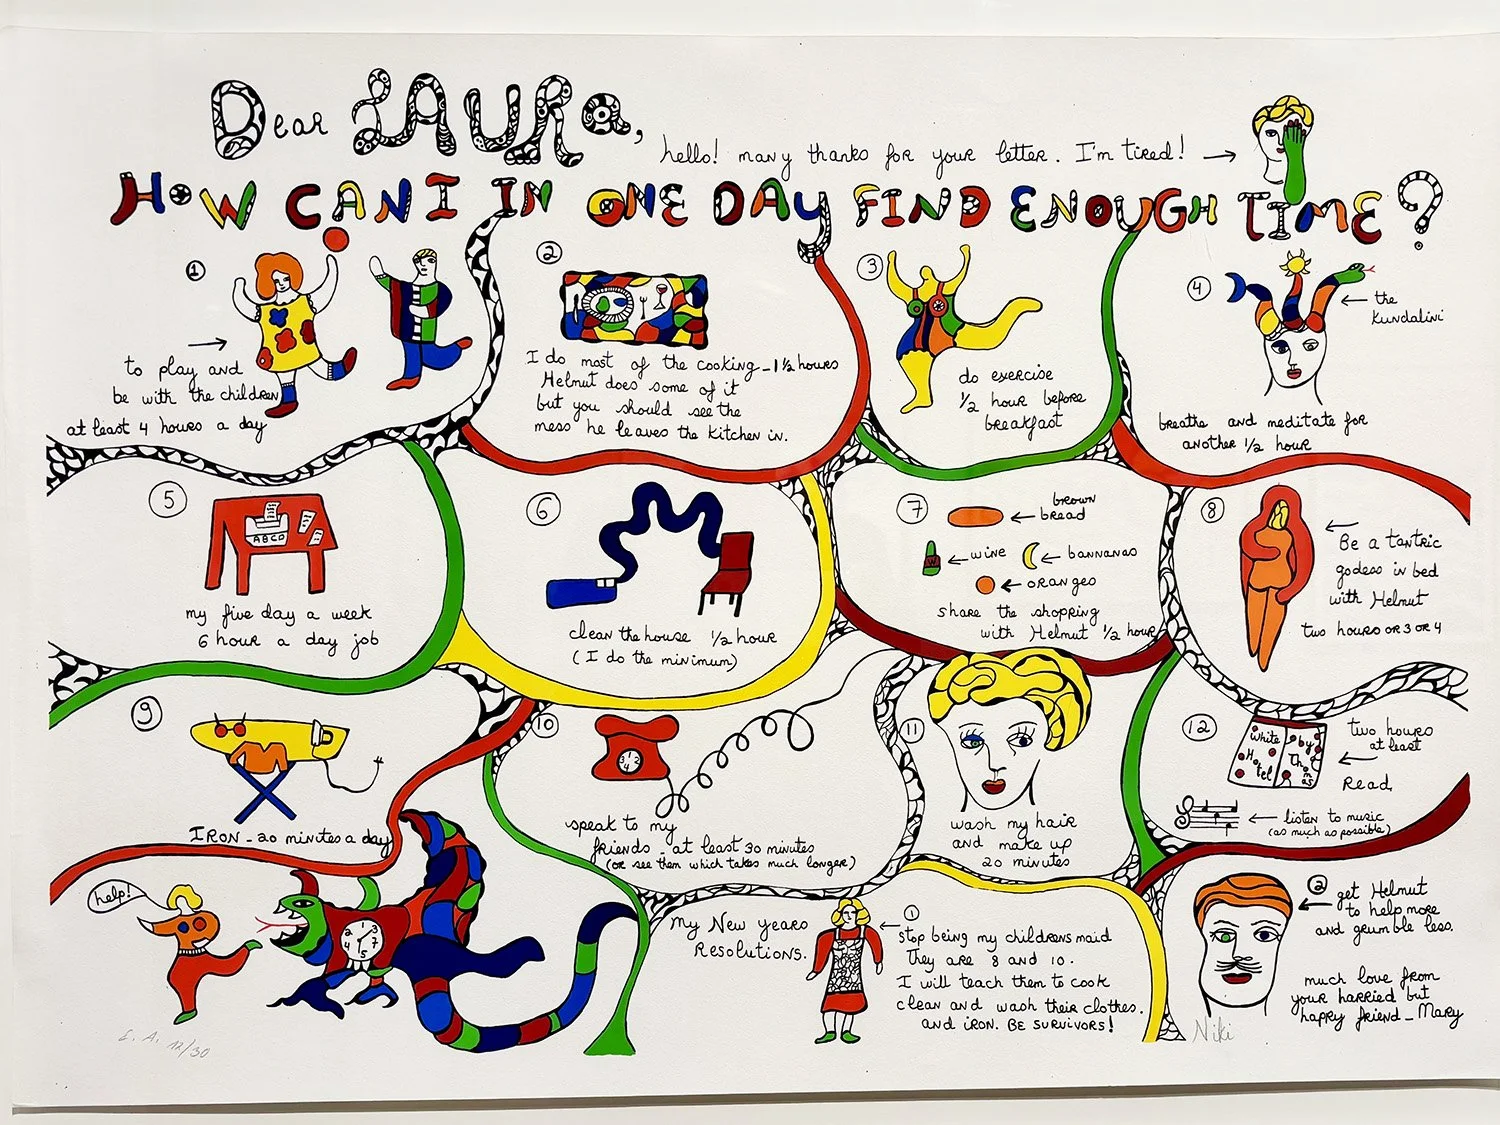 Dear LAURa,
hello! many thanks for your letter. I'm tired!
HOW CAN I IN ONE DAY FIND ENOUGH TIME?
1
to play and
be with the children
at least 4 hours a day
2
I do most of the cooking - 1 1/2 hours
Helmut does some of it
but you should see the
mess he leaves the kitchen in.
3
do exercise
1/2 hour before
breakfast
4
the
Kundalini
breathe and meditate for
another 1/2 hour
5
ABCD
my five day a week
6 hour a day job
6
clean the house 1/2 hour
(I do the minimum)
7
brown
bread
W
wine
bannanas
oranges
share the shopping
with Helmut 1/2 hour
8
Be a tantric
godess in bed
with Helmut
two hours OR 3 OR 4
9
IRON - 20 minutes a day
10
speak to my
friends - at least 30 minutes
(or see them which takes much longer)
11
wash my hair
and make up
20 minutes
12
White Hotel by Thomas
two hours
at least
Read
listen to music
(as much as possible)
help!
My New years
Resolutions.
1
stop being my childrens maid
They are 8 and 10.
I will teach them to cook
clean and wash their clothes.
and iron. BE SURVIVORS!
2
get Helmut
to help more
and grumble less.
much love from
your harried but
happy friend - Mary
E. A. 12/30
Niki